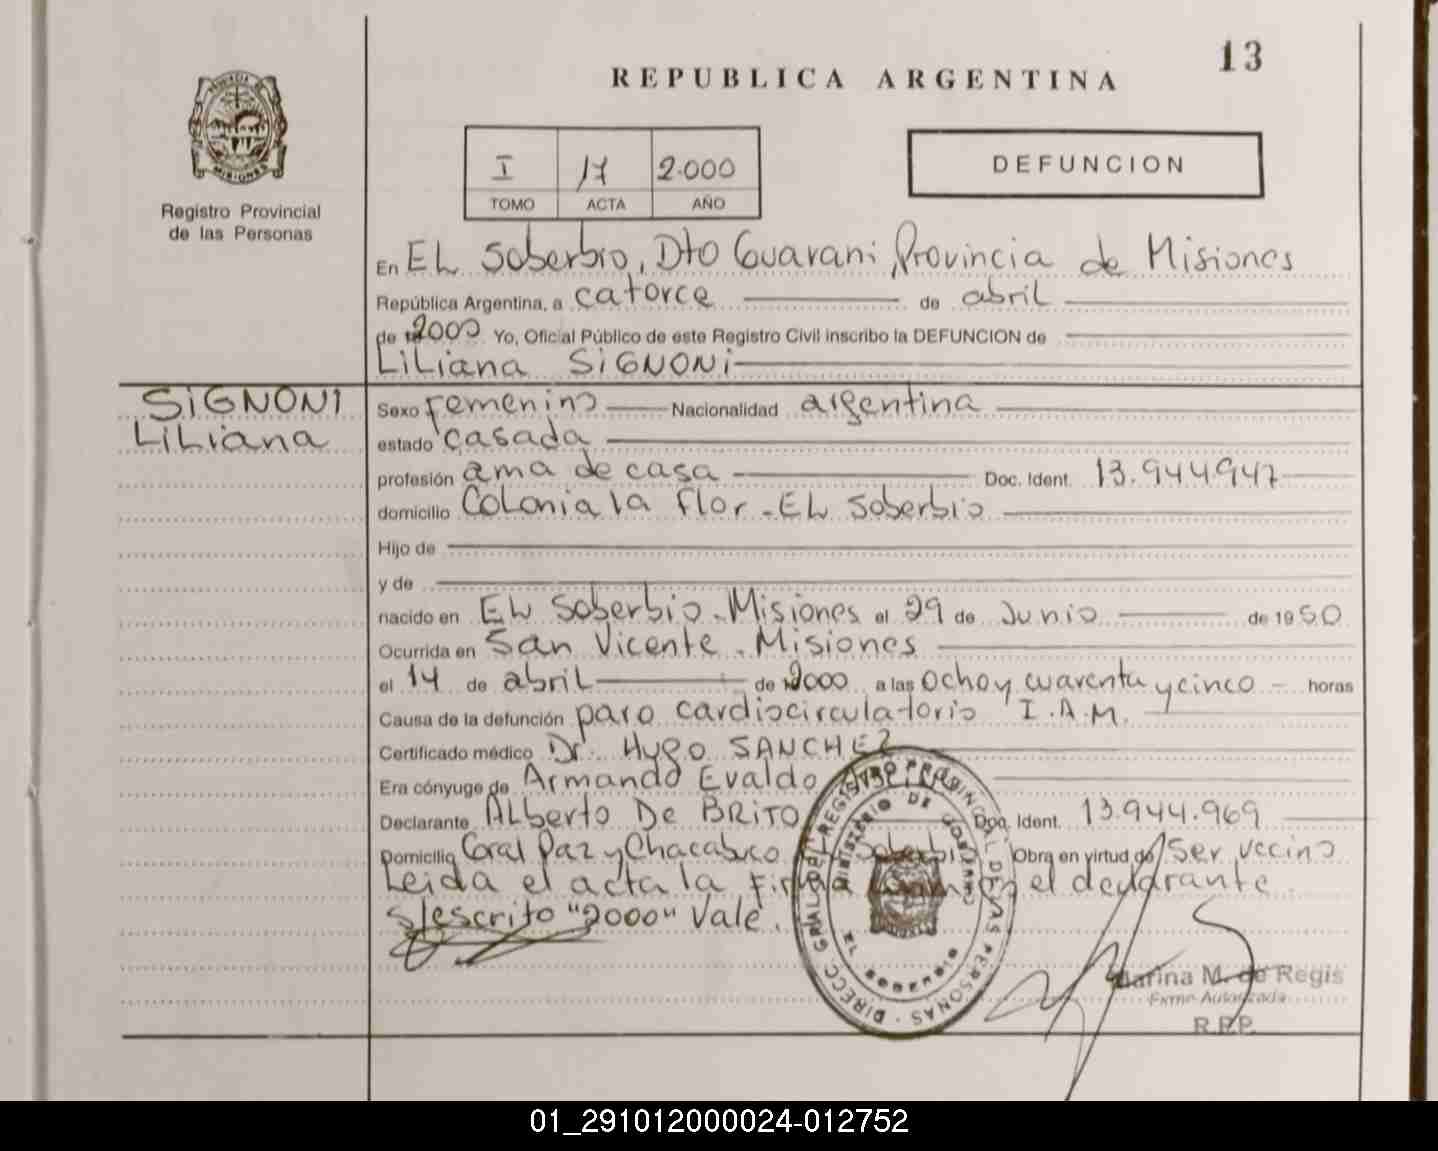 13
REPUBLICA ARGENTINA
PROVINCIA DE MISIONES
Registro Provincial
de las Personas
I 17 2.000
TOMO ACTA AÑO
DEFUNCION
En EL Soberbio, Dto Guarani, Provincia de Misiones
República Argentina, a catorce de abril
de 2000 Yo, Oficial Público de este Registro Civil inscribo la DEFUNCION de
Liliana SiGNONi
SiGNONi
Liliana
Sexo Femenino Nacionalidad argentina
estado casada
profesión ama de casa Doc. Ident. 13.944.947
domicilio Colonia la Flor - EL Soberbio
Hijo de
y de
nacido en EL Soberbio - Misiones el 29 de Junio de 1950
Ocurrida en San Vicente - Misiones
el 14 de abril de 2000 a las ocho y cuarenta y cinco - horas
Causa de la defunción paro cardiocirculatorio I.A.M.
Certificado médico Dr. Hugo SANCHEZ
Era cónyuge de Armando Evaldo
Declarante Alberto De BRITO Doc. Ident. 13.944.969
Domicilio Gral Paz y Chacabuco Soberbio Obra en virtud de Ser vecino
Leida el acta la el declarante
s/escrito "2000" Vale.
DIRECC. GRAL. DEL REGISTRO PROVINCIAL DE LAS PERSONAS
MINISTERIO DE GOBIERNO
MISIONES
Marina M. de Regis
Firma Autorizada
R.P.P.
01_291012000024-012752